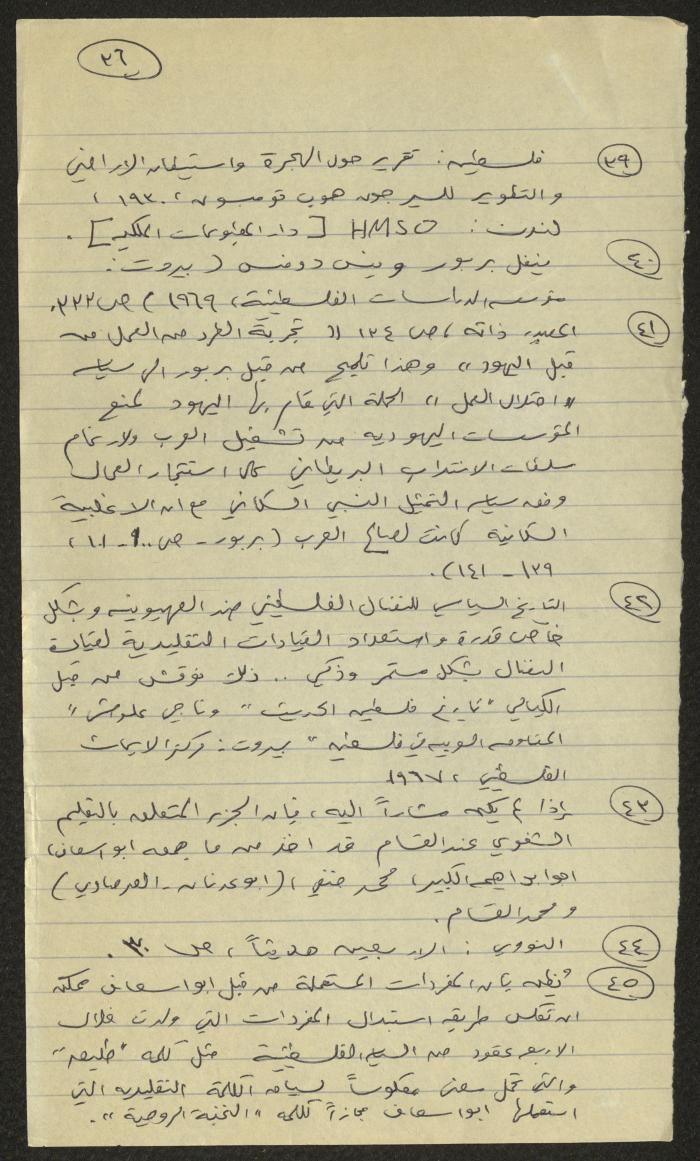 ٣٦
٣٩ فلسطين: تقرير حول الهجرة واستيطان الاراضي
والتطوير للسير جون هوب تومسون، ١٩٣٠،
لندن: HMSO [دار المطبوعات الملكية].
٤٠ نيفل بربور وينس دوفس (بيروت:
مؤسسة الدراسات الفلسطينية، ١٩٦٩) ص ٢٢٢.
٤١ المصدر ذاته، ص ١٣٤ "تجربة الطرد من العمل من
قبل اليهود" وهذا تلميح من قبل بربور الى سياسة
"احتلال العمل" الحملة التي قام بها اليهود لمنع
المؤسسات اليهودية من تشغيل العرب ولارغام
سلطات الانتداب البريطاني على استئجار العمال
وفق سياسة التمثيل النسبي السكاني مع ان الاغلبية
السكانية كانت لصالح العرب (بربور - ص ١٠٠ - ١٠١،
١٣٩ - ١٤١).
٤٢ التاريخ السياسي للنضال الفلسطيني ضد الصهيونية وبشكل
خاص قدرة واستعداد القيادات التقليدية لقيادة
النضال بشكل مستمر وذكي .. ذلك نوقش من قبل
الكيالي "تاريخ فلسطين الحديث" وناجي علوش "
المقاومة العربية في فلسطين" بيروت: مركز الابحاث
الفلسطيني، ١٩٦٧.
٤٣ إذا لم يكن مشاراً اليه، فان الجزء المتعلق بالتعليم
الشفوي عند القسام قد اخذ من ما جمعه ابو اسعاف،
ابو ابراهيم الكبير، محمد حنفي، (ابو عدنان - الصرصاوي)
ومحمد القسام.
٤٤ النووي: الاربعين حديثاً، ص ٣٠.
٤٥ نظن بان المفردات المستعملة من قبل ابو اسعاف ممكن
ان تعكس طريقة استبدال المفردات التي ولدت خلال
الاربعة عقود من السياسة الفلسطينية مثل كلمة "طليعة"
والتي تحمل معنى معكوساً لسياق الكلمة التقليدية التي
استعملها ابو اسعاف مجازاً لكلمة "النخبة الروحية".